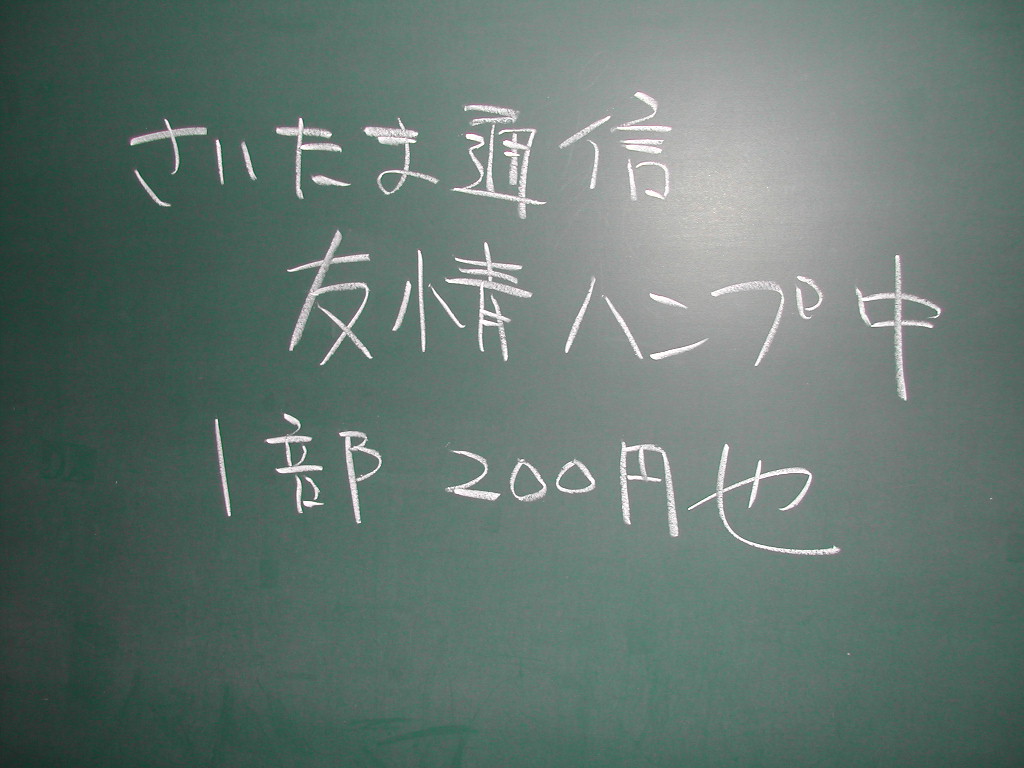 さいたま通信
友情ハンプ中
1部 200円也